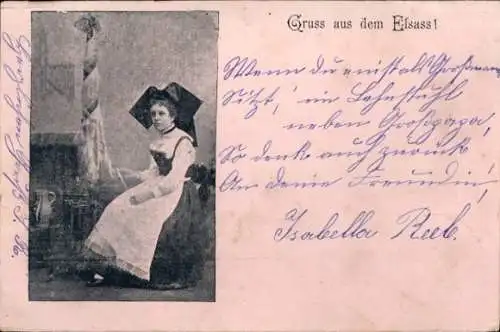 Gruss aus dem Elsass!
Wenn du einst als Großmama
Sitzt, im Lehnstuhl
neben Großpapa,
So denk auch zurück
An deine Freundin,
Isabella Reeb.